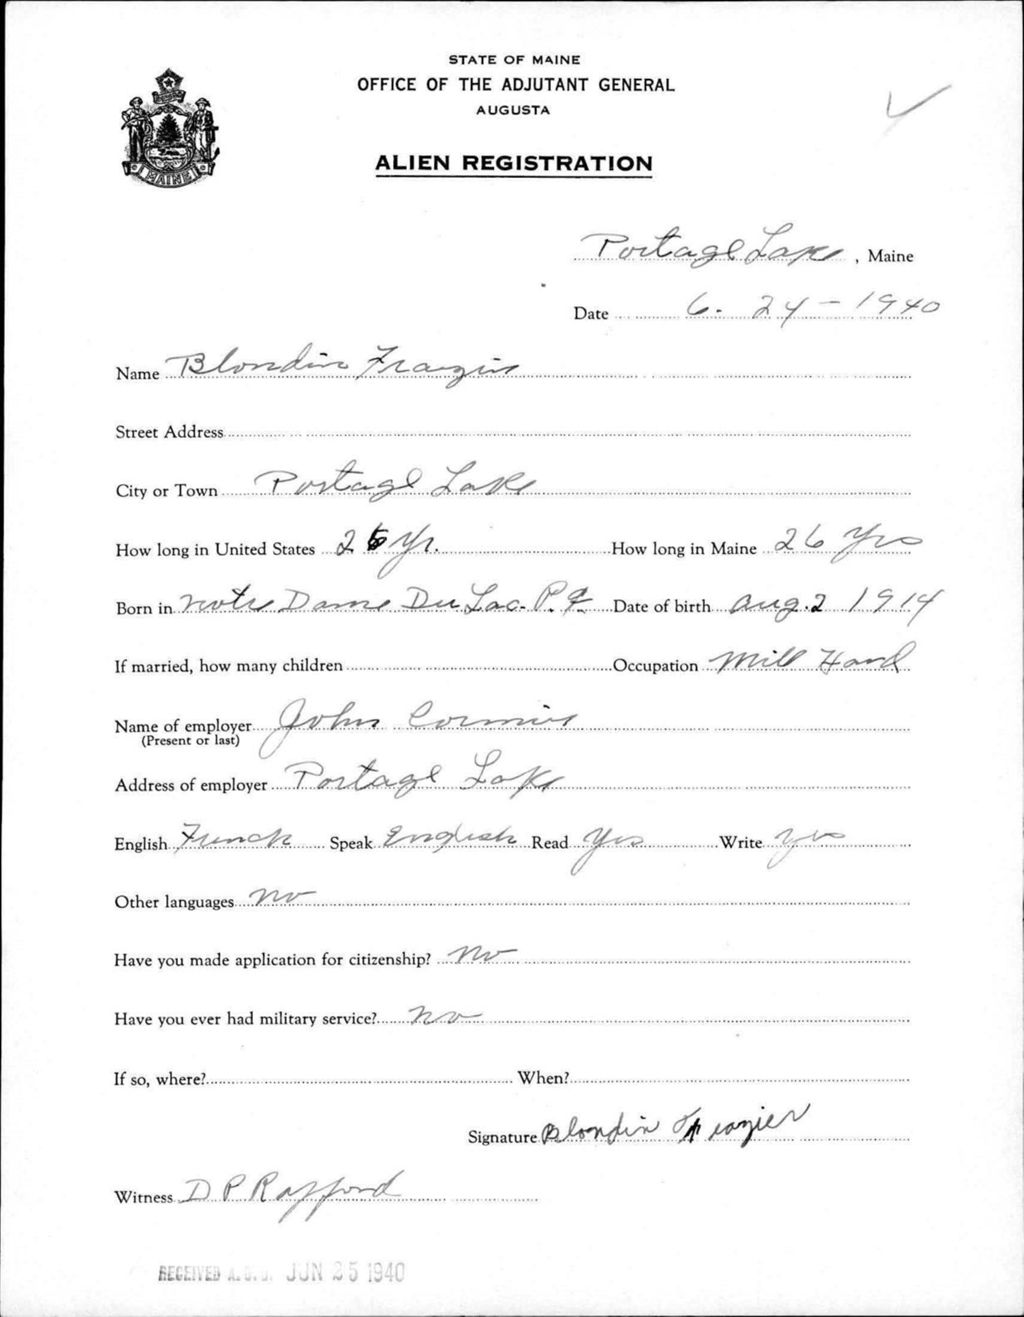 STATE OF MAINE
OFFICE OF THE ADJUTANT GENERAL
AUGUSTA
ALIEN REGISTRATION
MAINE
Portage Lake, Maine
Date 6. 24-1940
Name Blondin Frazier
Street Address
City or Town Portage Lake
How long in United States 26 Yr. How long in Maine 26 Yrs
Born in Notre Dame Du Lac P.Q. Date of birth Aug. 2 1914
If married, how many children Occupation Mill Hand
Name of employer John Cormier
(Present or last)
Address of employer Portage Lake
English French Speak English Read Yes Write Yes
Other languages No
Have you made application for citizenship? No
Have you ever had military service? No
If so, where? When?
Signature Blondin Frazier
Witness D P Rafford
RECEIVED A. G. O. JUN 25 1940